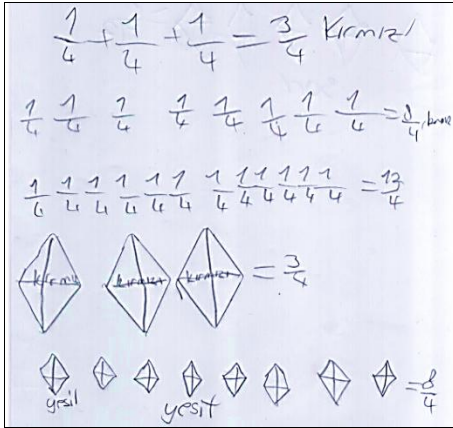 1/4 + 1/4 + 1/4 = 3/4 Kırmızı
1/4 1/4 1/4 1/4 1/4 1/4 1/4 1/4 = 8/4
1/4 1/4 1/4 1/4 1/4 1/4 1/4 1/4 1/4 1/4 1/4 1/4 = 12/4
kırmızı kırmızı kırmızı = 3/4
= 8/4
yesil yesit